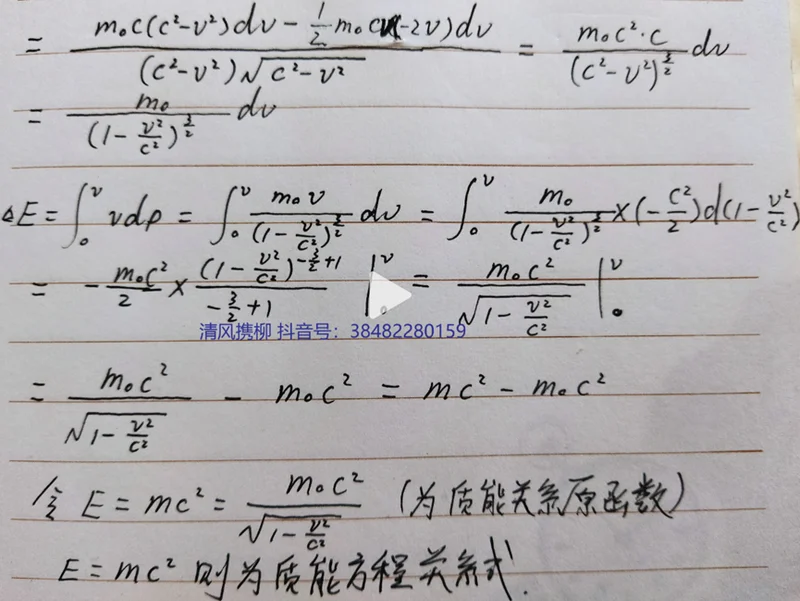 = (m₀c(c²-v²)dv - ½m₀c(-2v)dv) / ((c²-v²)√(c²-v²)) = (m₀c²·c) / (c²-v²)^(3/2) dv
= m₀ / (1-v²/c²)^(3/2) dv
△E = ∫₀ᵛ vdp = ∫₀ᵛ m₀v / (1-v²/c²)^(3/2) dv = ∫₀ᵛ m₀ / (1-v²/c²)^(3/2) × (-c²/2) d(1-v²/c²)
= -m₀c²/2 × (1-v²/c²)^(-3/2+1) / (-3/2+1) |₀ᵛ = m₀c² / √(1-v²/c²) |₀ᵛ
清风携柳 抖音号：38482280159
= m₀c² / √(1-v²/c²) - m₀c² = mc² - m₀c²
令 E = mc² = m₀c² / √(1-v²/c²) (为质能关系原函数)
E = mc² 则为质能方程关系式.